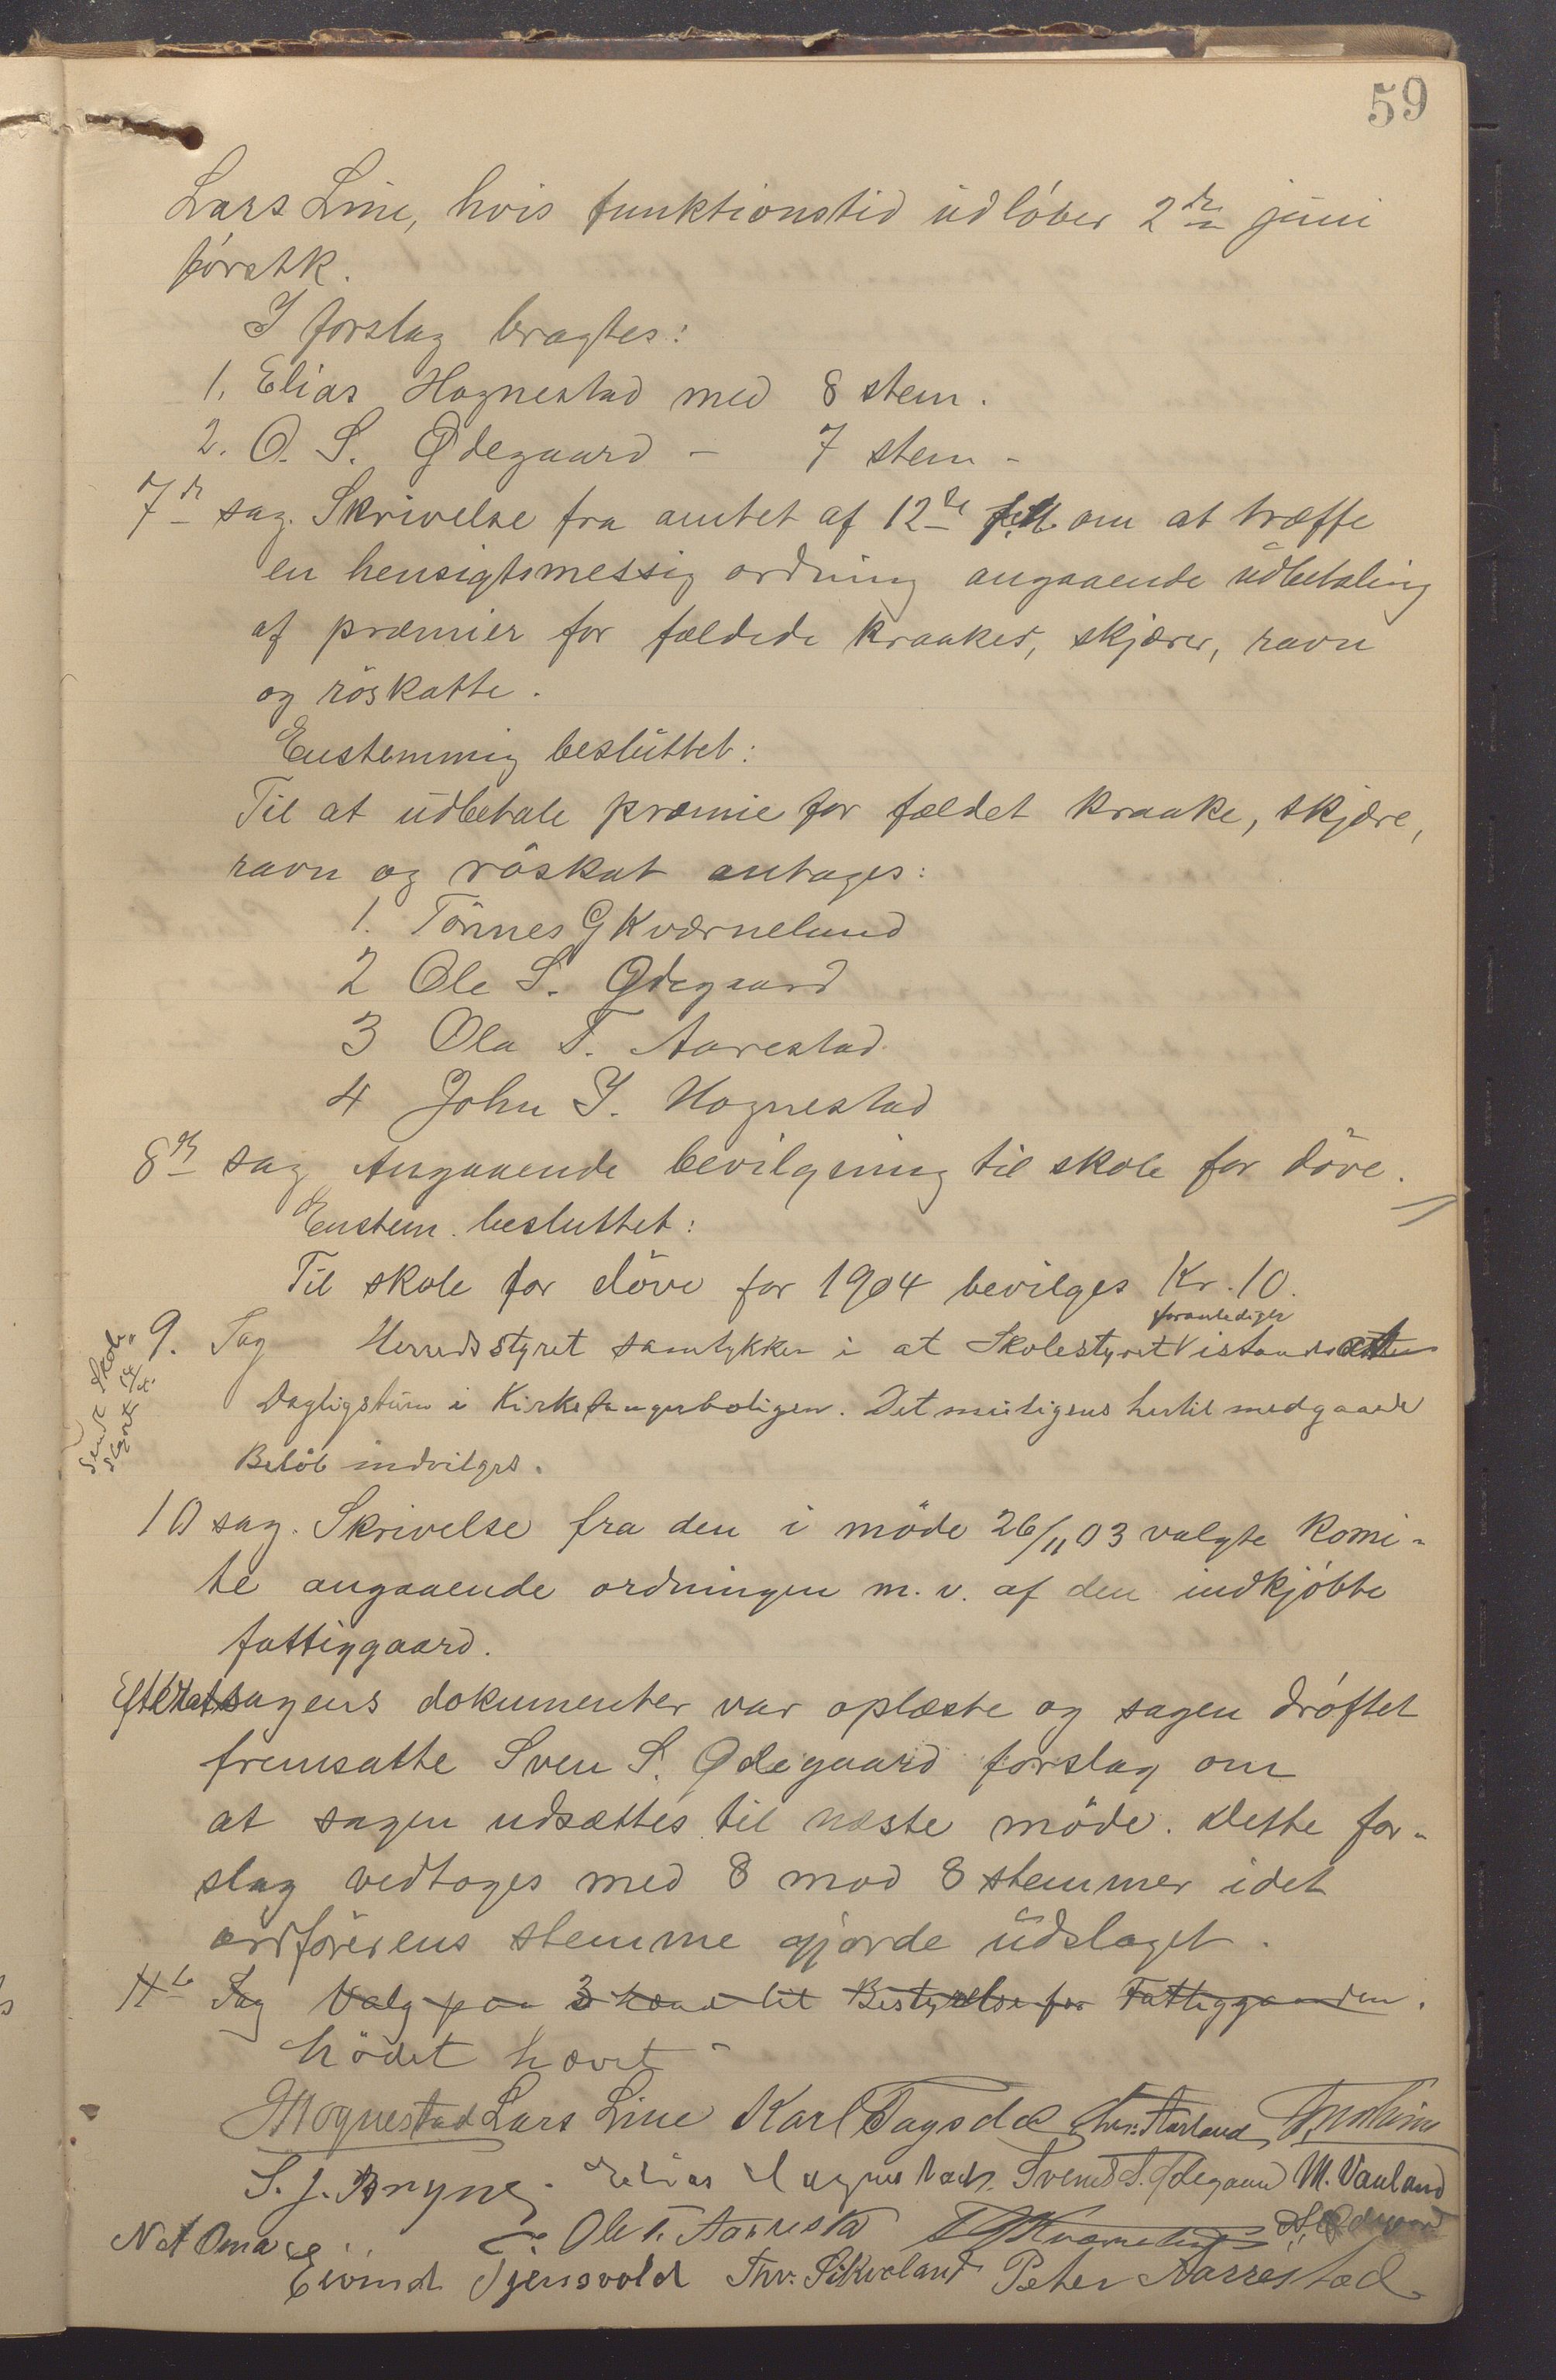 59
Lars Line, hvis funktionstid udløber 2den juni
førstk.
I forslag bragtes:
1. Elias Hognestad med 8 stem.
2. O. S. Ødegaard – 7 stem –
7de sag. Skrivelse fra amtet af 12te om at træffe
en hensigtsmessig ordning angaaende udbetaling
af præmier for fældede kraaker, skjærer, ravn
og røskatte.
Enstemmig besluttet:
Til at udbetale præmie for fældet kraake, skjære,
ravn og røskat antages:
1. Tönnes G Kværneland
2 Ole S. Ødegaard
3 Ola T. Aarestad
4 John I. Hognestad
8de sag Angaaende bevilgning til skole for døve.
Enstem. besluttet:
Til skole for døve for 1904 bevilges Kr. 10.
foranlediger
9. Sag Herredsstyret samtykker i at Skolestyret istandsætter
Sendt Skole-
styret
Dagligstuen i Kirkesangerboligen. Det hertil medgaaede
Beløb indvilges.
10 sag. Skrivelse fra den i møde 26/11 03 valgte komi-
te angaaende ordningen m. v. af den indkjøbte
fattiggaard.
Efterat sagens dokumenter var oplæste og sagen drøftet
fremsatte Sven S. Ødegaard forslag om
at sagen udsættes til næste møde. Dette for-
slag vedtoges med 8 mod 8 stemmer idet
ordførerens stemme gjorde udslaget.
11te Sag Valg paa 3 Mænd til Bestyrelse for Fattiggaarden.
Mødet hævet
Hognestad Lars Line Karl Tagsdal Chr. Aarland
S. J. Bryne. Elias Hognestad. Svend S. Ødegaard M. Vauland
N A Oma Ole T. Aarrestad T G Kværneland
Eivind Tjensvold Thv. Sikveland Peter Aarrestad